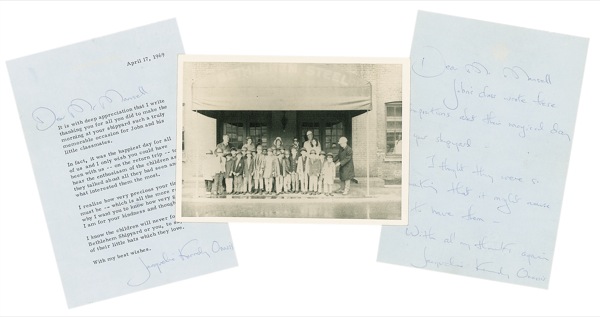 April 17, 1969
Dear Mr. Mansell
It is with deep appreciation that I write
thanking you for all you did to make the
morning at your shipyard such a truly
memorable occasion for John and his
little classmates.
In fact, it was the happiest day for all
of us and I only wish you could have
been with us -- on the return trip -- to
hear the enthusiasm of the children as
they talked about all they had seen and
what interested them the most.
I realize how very precious your time
must be -- which is all the more reason
why I want you to know how very grateful
I am for your kindness and
I know the children will never
Bethlehem Shipyard or you, to
of their little hats which they love.
With my best wishes,
Jacqueline Kennedy Onassis
Dear Mr. Mansell
John's class wrote these
compositions about their magical day
at your shipyard
I thought they were so
touching that you might
to have them
With all my thanks again
Jacqueline Kennedy Onassis